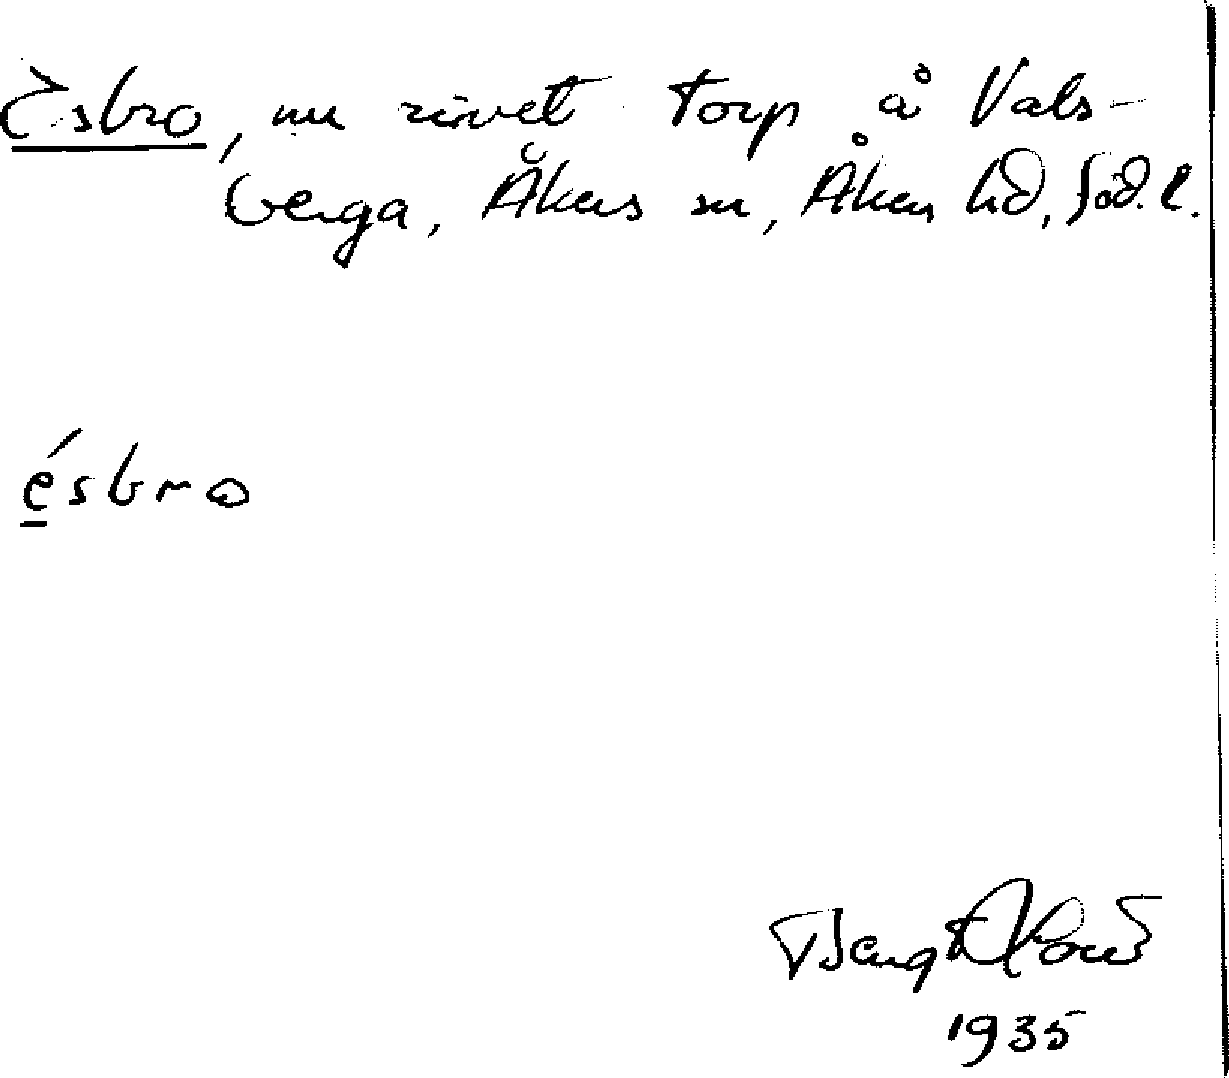 Esbro, nu rivet torp å Vals-
berga, Åkers sn, Åkers hd, Söd. l.
ésbro
Bengt
1935